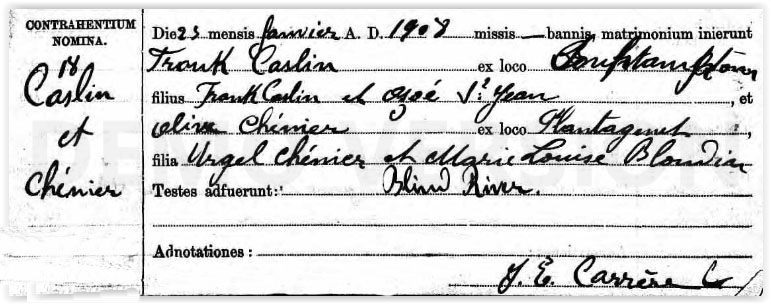 CONTRAHENTIUM
NOMINA.
18
Caslin
et
Chénier
Die 23 mensis Janvier A. D. 1908 missis — bannis, matrimonium inierunt
Frank Caslin ex loco
filius Frank Caslin et Ozoé St Jean, et
Olive Chénier ex loco Plantagenet,
filia Urgel Chénier et Marie Louise Blondin
Testes adfuerunt: Blind River.
Adnotationes:
J. E. Carrère